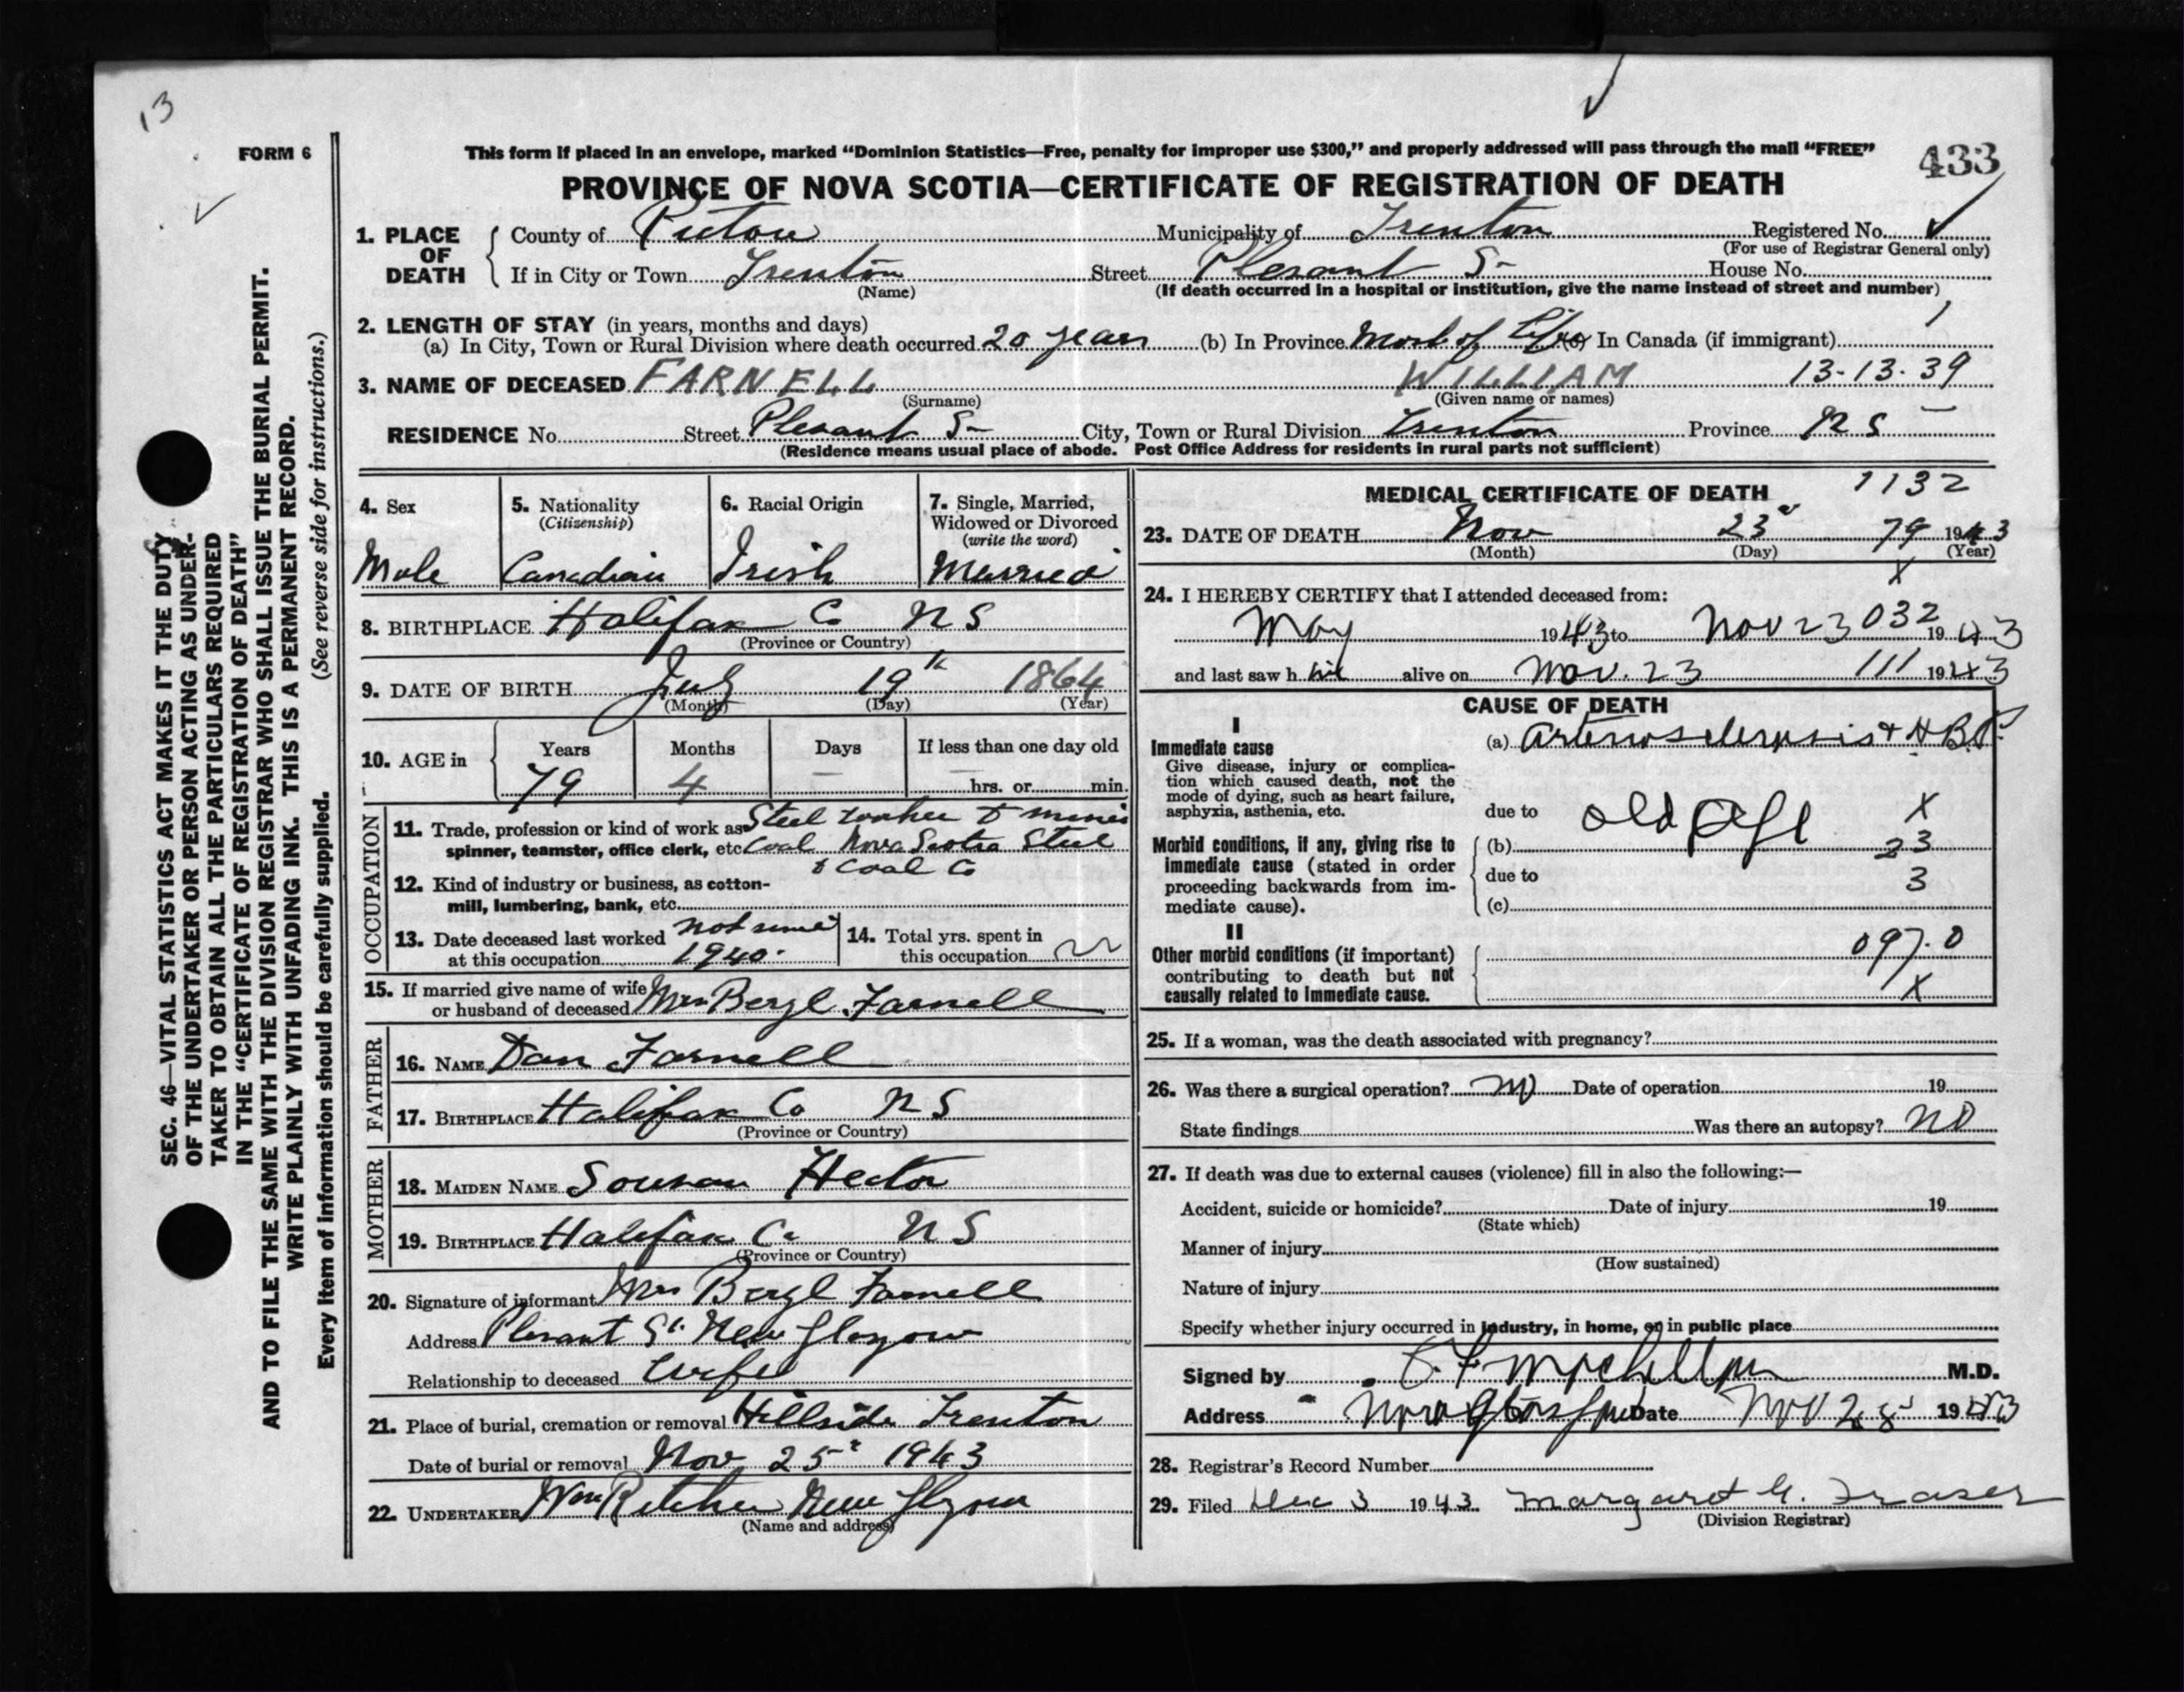 13
FORM 6
This form if placed in an envelope, marked “Dominion Statistics—Free, penalty for improper use $300,” and properly addressed will pass through the mail “FREE”
433
PROVINCE OF NOVA SCOTIA—CERTIFICATE OF REGISTRATION OF DEATH
1. PLACE OF DEATH County of Pictou Municipality of Trenton Registered No.
(For use of Registrar General only)
If in City or Town Trenton Street Plesant S- House No.
(Name) (If death occurred in a hospital or institution, give the name instead of street and number)
2. LENGTH OF STAY (in years, months and days)
(a) In City, Town or Rural Division where death occurred 20 years (b) In Province Most of Life (c) In Canada (if immigrant)
3. NAME OF DECEASED FARNELL WILLIAM 13-13-39
(Surname) (Given name or names)
RESIDENCE No. Street Plesant S- City, Town or Rural Division Trenton Province N S
(Residence means usual place of abode. Post Office Address for residents in rural parts not sufficient)
4. Sex 5. Nationality (Citizenship) 6. Racial Origin 7. Single, Married, Widowed or Divorced (write the word)
Male Canadian Irish Married
8. BIRTHPLACE Halifax Co N S
(Province or Country)
9. DATE OF BIRTH July 19th 1864
(Month) (Day) (Year)
10. AGE in Years Months Days If less than one day old
79 4 — hrs. or min.
OCCUPATION
11. Trade, profession or kind of work as spinner, teamster, office clerk, etc. Steel worker & miner
Coal Nova Scotia Steel
& Coal Co
12. Kind of industry or business, as cotton-mill, lumbering, bank, etc.
13. Date deceased last worked at this occupation not since 1940. 14. Total yrs. spent in this occupation
15. If married give name of wife or husband of deceased Mrs Beryl Farnell
FATHER
16. NAME Dan Farnell
17. BIRTHPLACE Halifax Co N S
(Province or Country)
MOTHER
18. MAIDEN NAME Sousan Hector
19. BIRTHPLACE Halifax Co N S
(Province or Country)
20. Signature of informant Mrs Beryl Farnell
Address Plesant St. New Glasgow
Relationship to deceased Wife
21. Place of burial, cremation or removal Hillside Trenton
Date of burial or removal Nov 25" 1943
22. UNDERTAKER Wm Ritchie New Glasgow
(Name and address)
MEDICAL CERTIFICATE OF DEATH 1132
23. DATE OF DEATH Nov 23 79 1943
(Month) (Day) (Year)
X
24. I HEREBY CERTIFY that I attended deceased from:
May 1943 to Nov 23 032 1943
and last saw h im alive on Nov. 23 111 1943
CAUSE OF DEATH
I
Immediate cause
Give disease, injury or complication which caused death, not the mode of dying, such as heart failure, asphyxia, asthenia, etc.
(a) Arteriosclerosis + H B.P.
due to old age X
Morbid conditions, if any, giving rise to immediate cause (stated in order proceeding backwards from immediate cause).
(b) 23
due to 3
(c)
II
Other morbid conditions (if important) contributing to death but not causally related to immediate cause.
097.0
X
25. If a woman, was the death associated with pregnancy?
26. Was there a surgical operation? no Date of operation 19
State findings Was there an autopsy? no
27. If death was due to external causes (violence) fill in also the following:—
Accident, suicide or homicide? Date of injury 19
(State which)
Manner of injury
(How sustained)
Nature of injury
Specify whether injury occurred in industry, in home, or in public place
Signed by M.D.
Address New Glasgow Date Nov 1943
28. Registrar's Record Number
29. Filed Dec 3 1943 Margaret G. Fraser
(Division Registrar)
SEC. 46—VITAL STATISTICS ACT MAKES IT THE DUTY
OF THE UNDERTAKER OR PERSON ACTING AS UNDER-
TAKER TO OBTAIN ALL THE PARTICULARS REQUIRED
IN THE “CERTIFICATE OF REGISTRATION OF DEATH”
AND TO FILE THE SAME WITH THE DIVISION REGISTRAR WHO SHALL ISSUE THE BURIAL PERMIT.
WRITE PLAINLY WITH UNFADING INK. THIS IS A PERMANENT RECORD.
Every item of information should be carefully supplied. (See reverse side for instructions.)